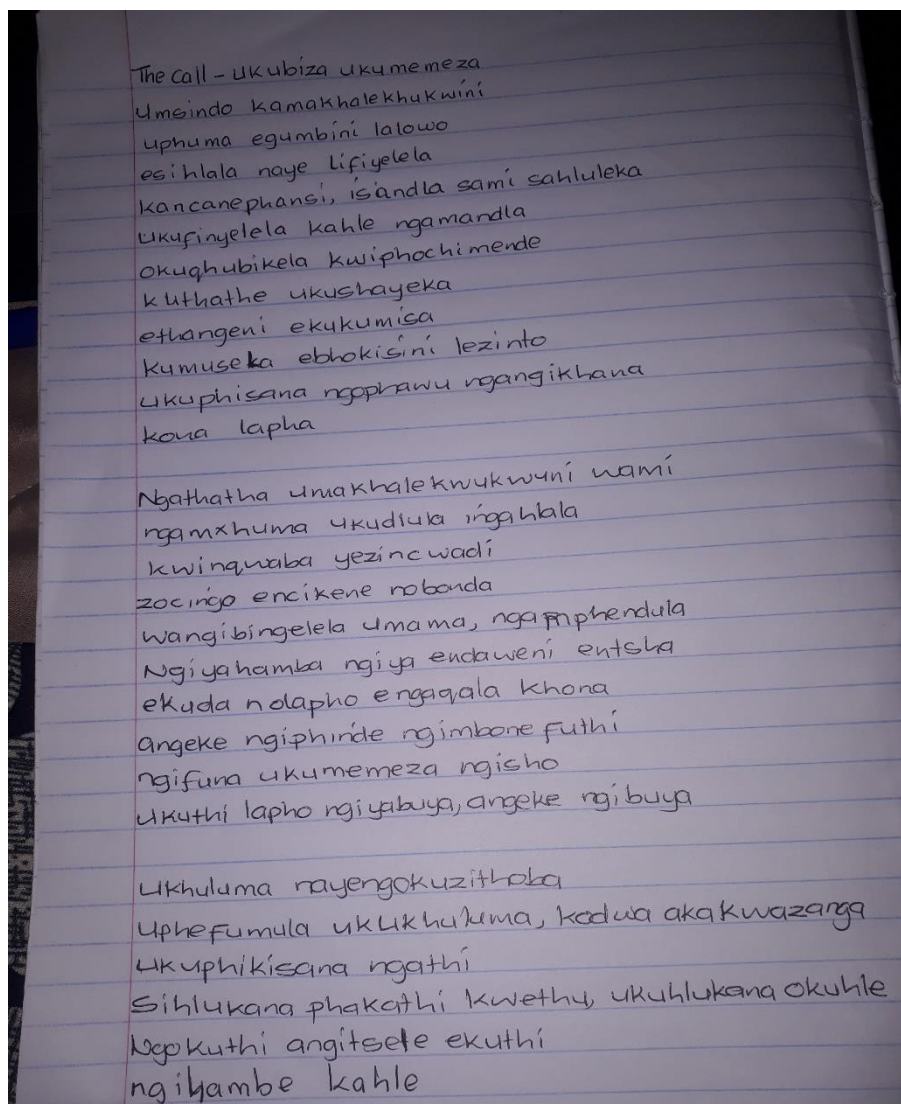 The call - ukubiza ukumemeza
Umsindo kamakhalekhukwini
uphuma egumbini lalowo
esihlala naye lifiyelela
kancanephansi, isandla sami sahluleka
ukufinyelela kahle ngamandla
okuqhubikela kwiphochimende
kuthathe ukushayeka
ethangeni ekukumisa
kumuseka ebhokisini lezinto
ukuphisana ngophawu ngangikhana
kona lapha

Ngathatha umakhalekwukwuni wami
ngamxhuma ukudlula ingahlala
kwinqwaba yezincwadi
zocingo encikene nobonda
wangibingelela umama, ngamphendula
Ngiyahamba ngiya endaweni entsha
ekuda nolapho engaqala khona
angeke ngiphinde ngimbone futhi
ngifuna ukumemeza ngisho
ukuthi lapho ngiyabuya, angeke ngibuya

Ukhuluma nayengokuzithoba
Uphefumula ukukhuluma, kodwa akakwazanga
ukuphikisana ngathi
Sihlukana phakathi kwethu, ukuhlukana okuhle
Ngokuthi angitsele ekuthi
ngihambe kahle